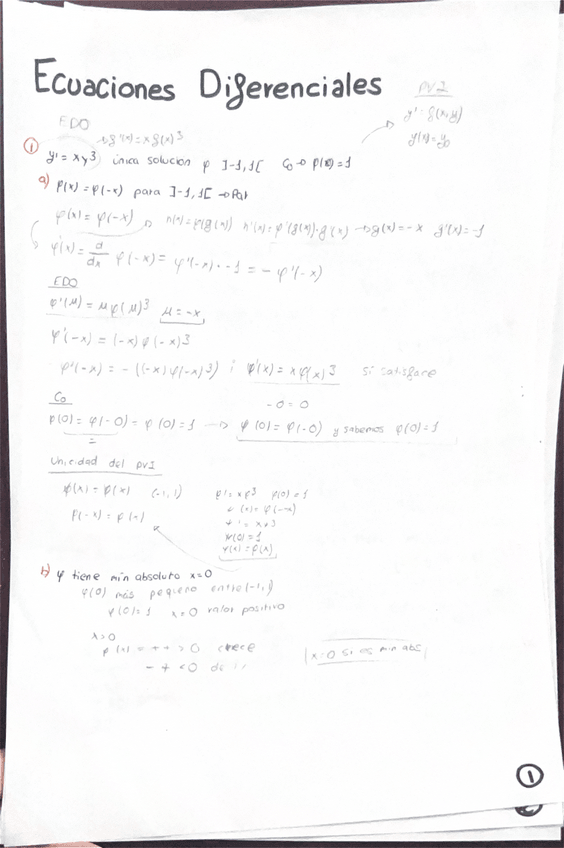 Ecuaciones Diferenciales
PVI
y' = f(x,y)
EDO
① y' = xy³ única solución φ ]-1,1[ C₀→
a) φ(x) = φ(-x) para ]-1,1[ → Par
φ(x) = φ(-x) → h(x) = φ(g(x)) h'(x) = φ'(g(x))·g'(x) → g(x) = -x g'(x) = -1
φ'(x) = d/dx φ(-x) = φ'(-x)·-1 = -φ'(-x)
EDO
φ'(μ) = μφ(μ)³ μ = -x
φ'(-x) = (-x)φ(-x)³
φ'(-x) = -((-x)φ(-x)³) i φ'(x) = xφ(x)³ si satisface
C₀
-0=0
φ(0) = φ(-0) = φ(0) = 1 → φ(0) = φ(-0) y sabemos φ(0)=1
Unicidad del PVI
(-1,1)
φ(0)=1
b) φ tiene min absoluto x=0
φ(0) más pequeño entre (-1,1)
φ(0)=1 x=0 valor positivo
x>0
= + + > 0 crece
- + < 0
x=0 si es min abs
①